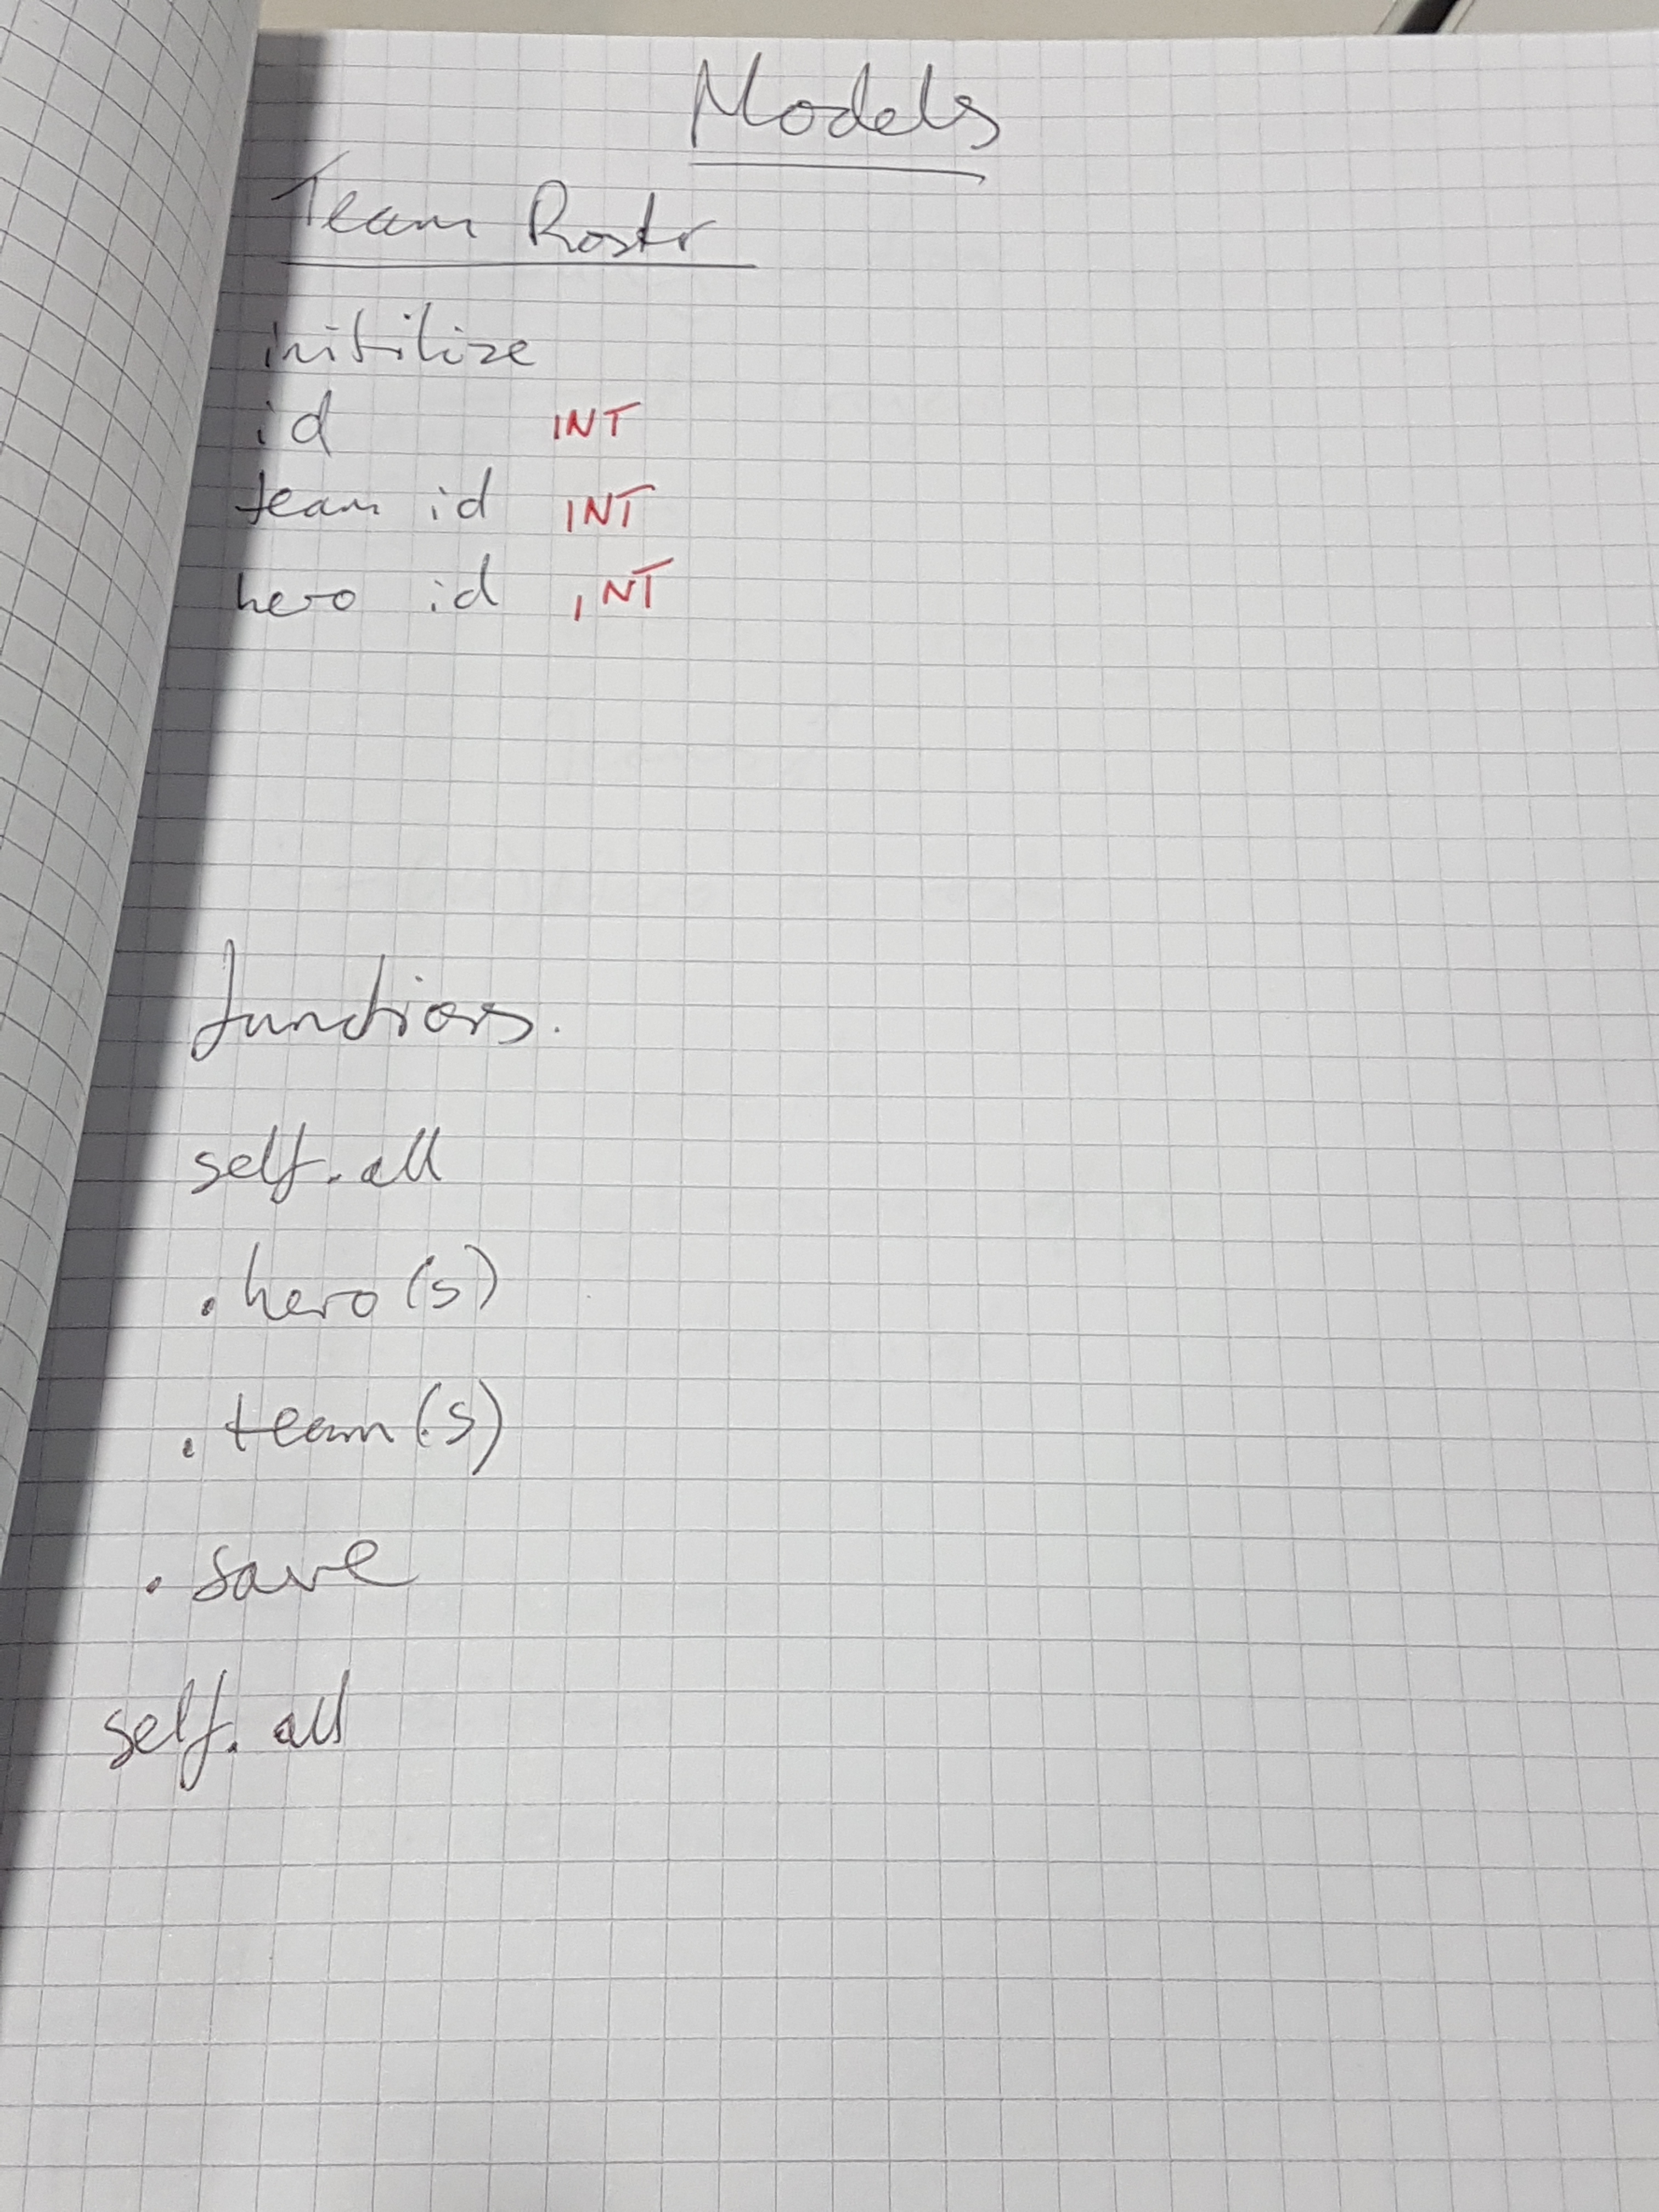 Models
Team Rostr
initilize
id INT
team id INT
hero id INT
functions.
self.all
.hero(s)
.team(s)
.save
self.all